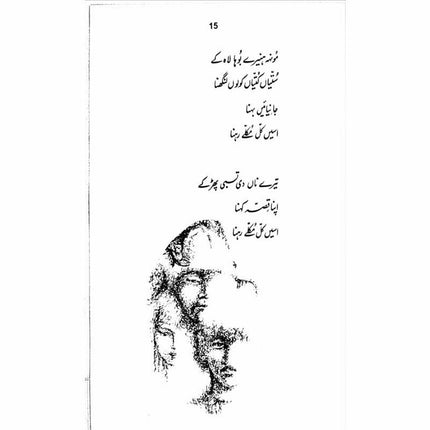 15
مونہہ ہنیرے بُوہا لاہ کے
سُتیاں کُتیاں کولوں لنگھنا
جا نیائیں بہنا
اسیں کلّ نُکلّے رہنا
تیرے ناں دی تسبی پھڑ کے
اپنا قصّہ کہنا
اسیں کلّ نُکلّے رہنا